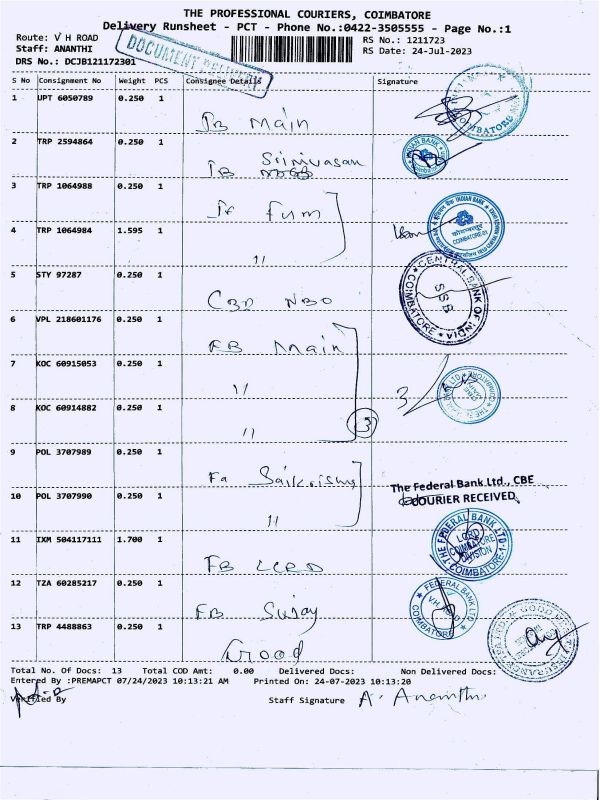 THE PROFESSIONAL COURIERS, COIMBATORE
Delivery Runsheet - PCT - Phone No.:0422-3505555 - Page No.:1
Route: V H ROAD
RS No.: 1211723
Staff: ANANTHI
RS Date: 24-Jul-2023
DRS No.: DCJB121172301
DOCUMENT DELIVERY
S No Consignment No Weight PCS Consignee Details Signature
1 UPT 6050789 0.250 1
IB Main
2 TRP 2594864 0.250 1
IB Srinivasan
3 TRP 1064988 0.250 1
4 TRP 1064984 1.595 1
11
INDIAN BANK
COIMBATORE-01
5 STY 97287 0.250 1
CBD NBO
CENTRAL BANK OF INDIA
SSB
COIMBATORE
6 VPL 218601176 0.250 1
FB Main
7 KOC 60915053 0.250 1
11
3
8 KOC 60914882 0.250 1
11
3
9 POL 3707989 0.250 1
The Federal Bank Ltd., CBE
COURIER RECEIVED
10 POL 3707990 0.250 1
11
11 IXM 504117111 1.700 1
FB LCRD
THE FEDERAL BANK LTD.
LCRD
COIMBATORE
DIVISION
COIMBATORE-1
12 TZA 60285217 0.250 1
FB Sujay
FEDERAL BANK LTD
V.H. ROAD
COIMBATORE
13 TRP 4488863 0.250 1
Total No. Of Docs: 13 Total COD Amt: 0.00 Delivered Docs: Non Delivered Docs:
Entered By :PREMAPCT 07/24/2023 10:13:21 AM Printed On: 24-07-2023 10:13:20
Verified By
Staff Signature A. Ananthi